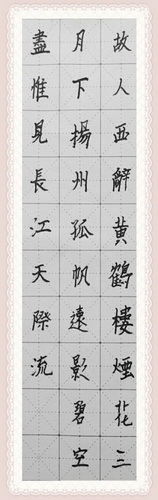 故人西辭黄鶴樓煙花三
月下揚州孤帆遠影碧空
盡惟見長江天際流